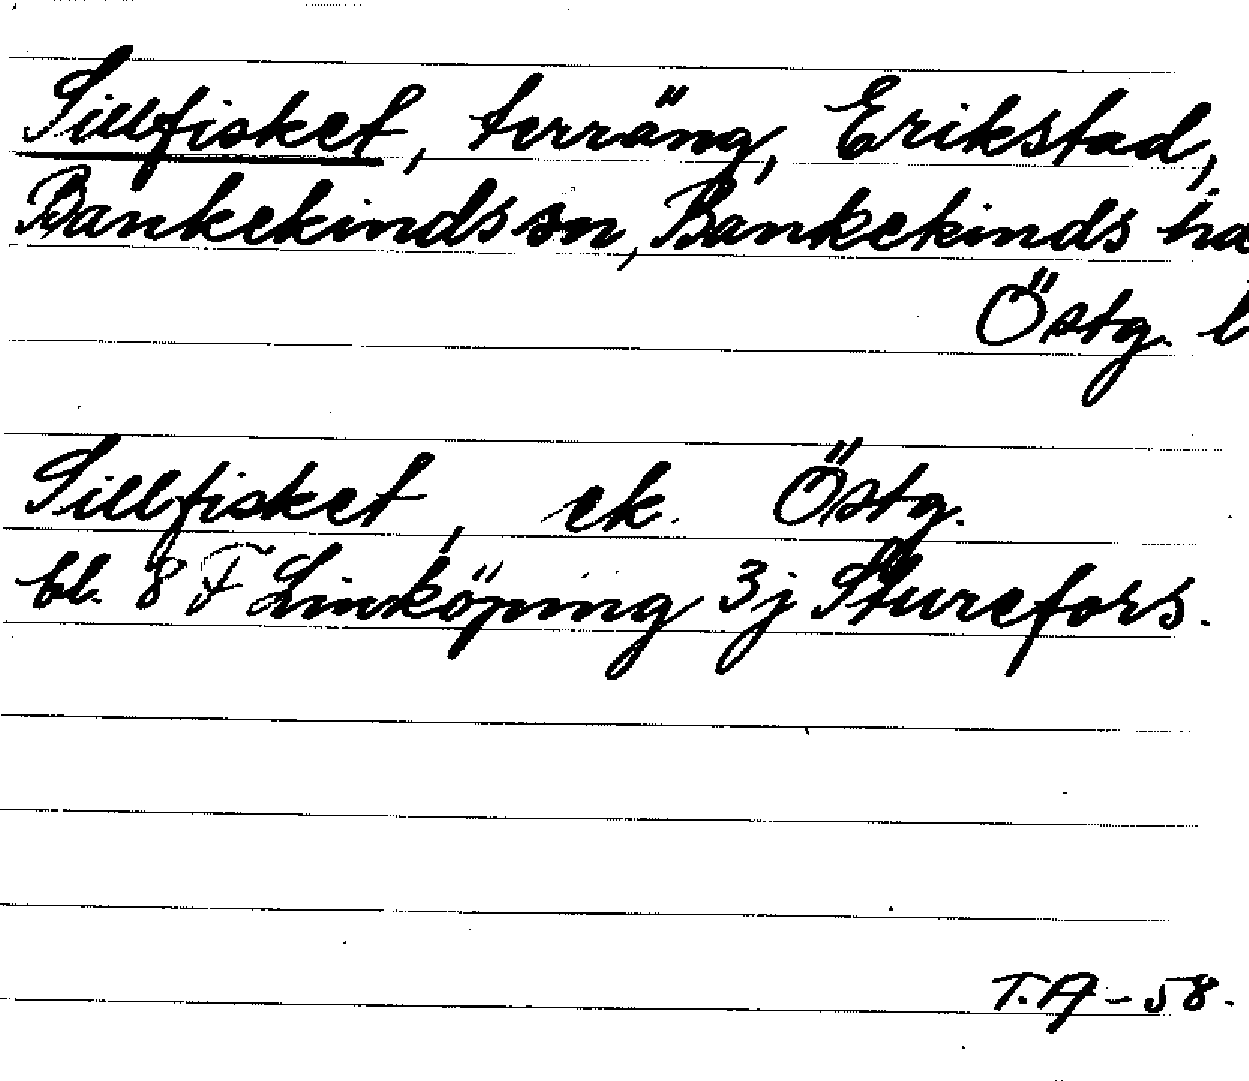 Sillfisket, terräng, Erikstad,
Bankekinds sn, Bankekinds
Östg.
Sillfisket, ek. Östg.
bl. 8 F Linköping 3j Sturefors.
T.A - 58.